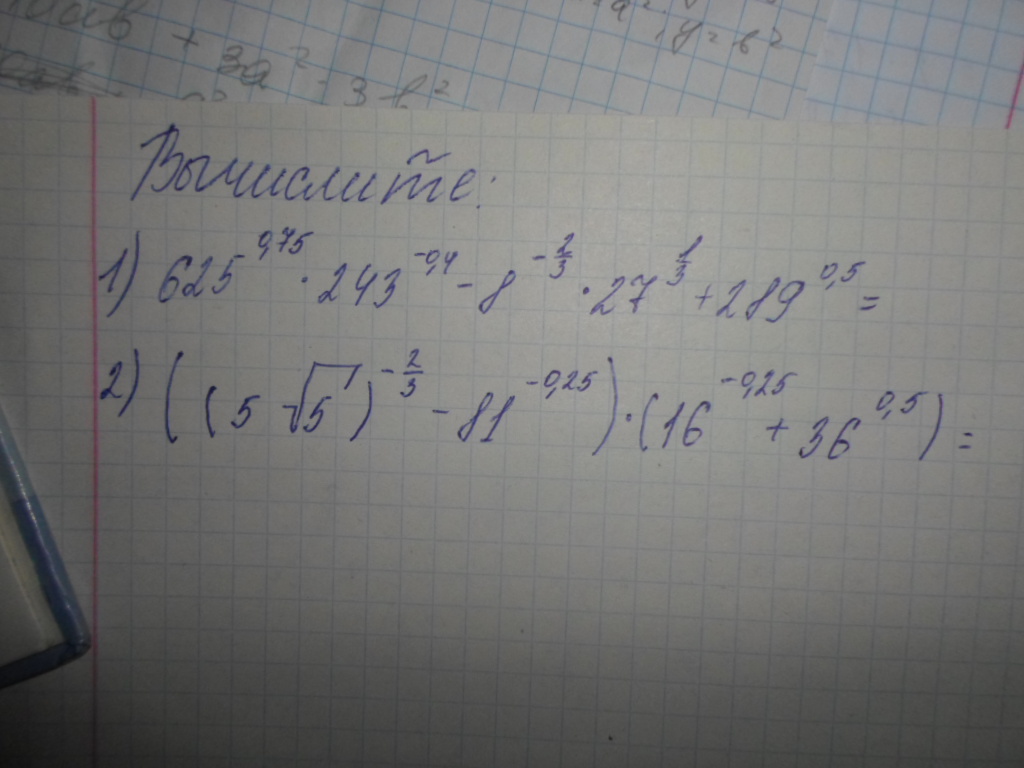 + 3a² - 3b²
y = b²
Вычислите:
1) 625^0,75 · 243^-0,4 - 8^-2/3 · 27^1/3 + 289^0,5 =
2) ((5√5)^-2/3 - 81^-0,25) · (16^-0,25 + 36^0,5) =